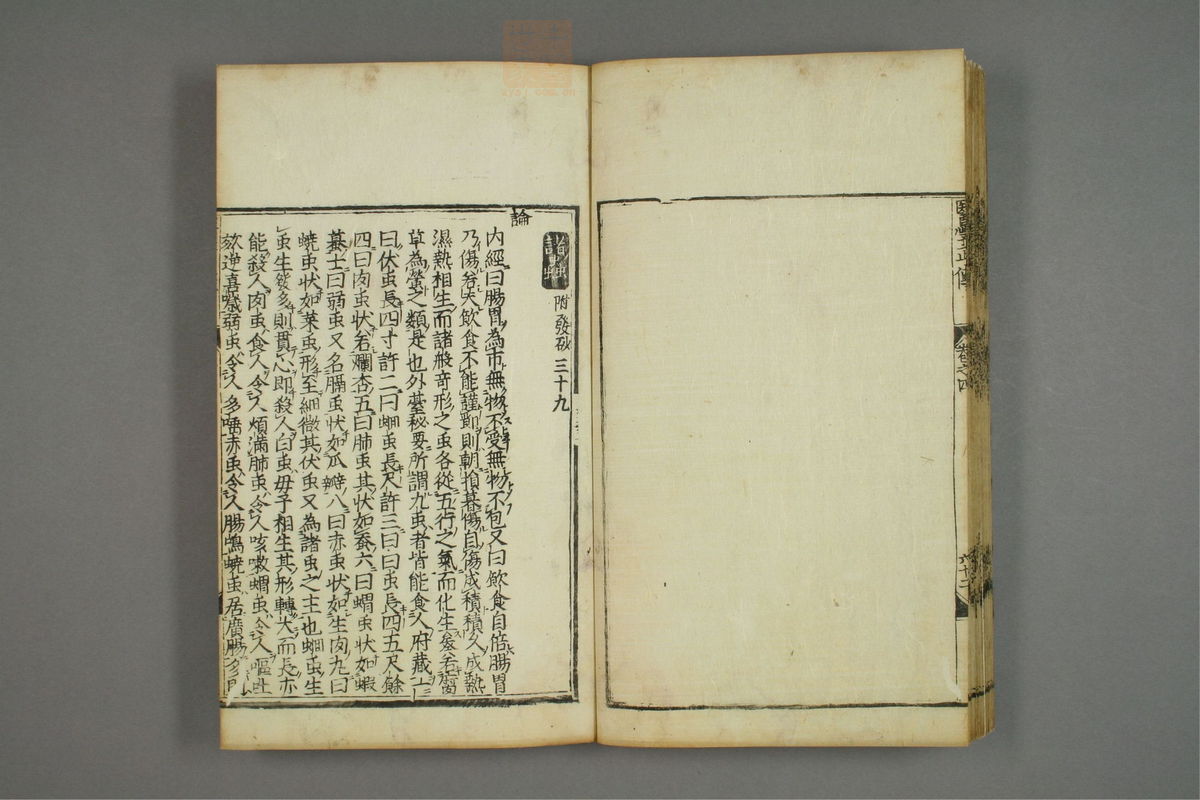 醫學正傳
卷之四
諸蟲 附發砂 三十九
論
內經曰腸胃為市無物不受無物不包又曰飲食自倍腸胃
乃傷若夫飲食不能謹節則朝損暮傷自傷成積積久成熱
濕熱相生而諸般奇形之虫各從五行之氣而化生矣若腐
草為螢之類是也外臺秘要所謂九虫者皆能食人府藏一
曰伏虫長四寸許二曰蛔虫長尺許三曰白虫長四五尺餘
四曰肉虫狀若爛杏五曰肺虫其狀如蚕六曰蝟虫狀如蝦
蟇七曰弱虫又名膈虫狀如瓜瓣八曰赤虫狀如生肉九曰
蟯虫狀如菜虫形至細微其伏虫又為諸虫之主也蛔虫生
虫生發多則貫心即殺人白虫母子相生其形轉大而長亦
能殺人肉虫食人令人煩滿肺虫令人咳嗽蝟虫令人嘔吐
欬逆喜噦弱虫令人多唾赤虫令人腸鳴蟯虫居廣腸多則